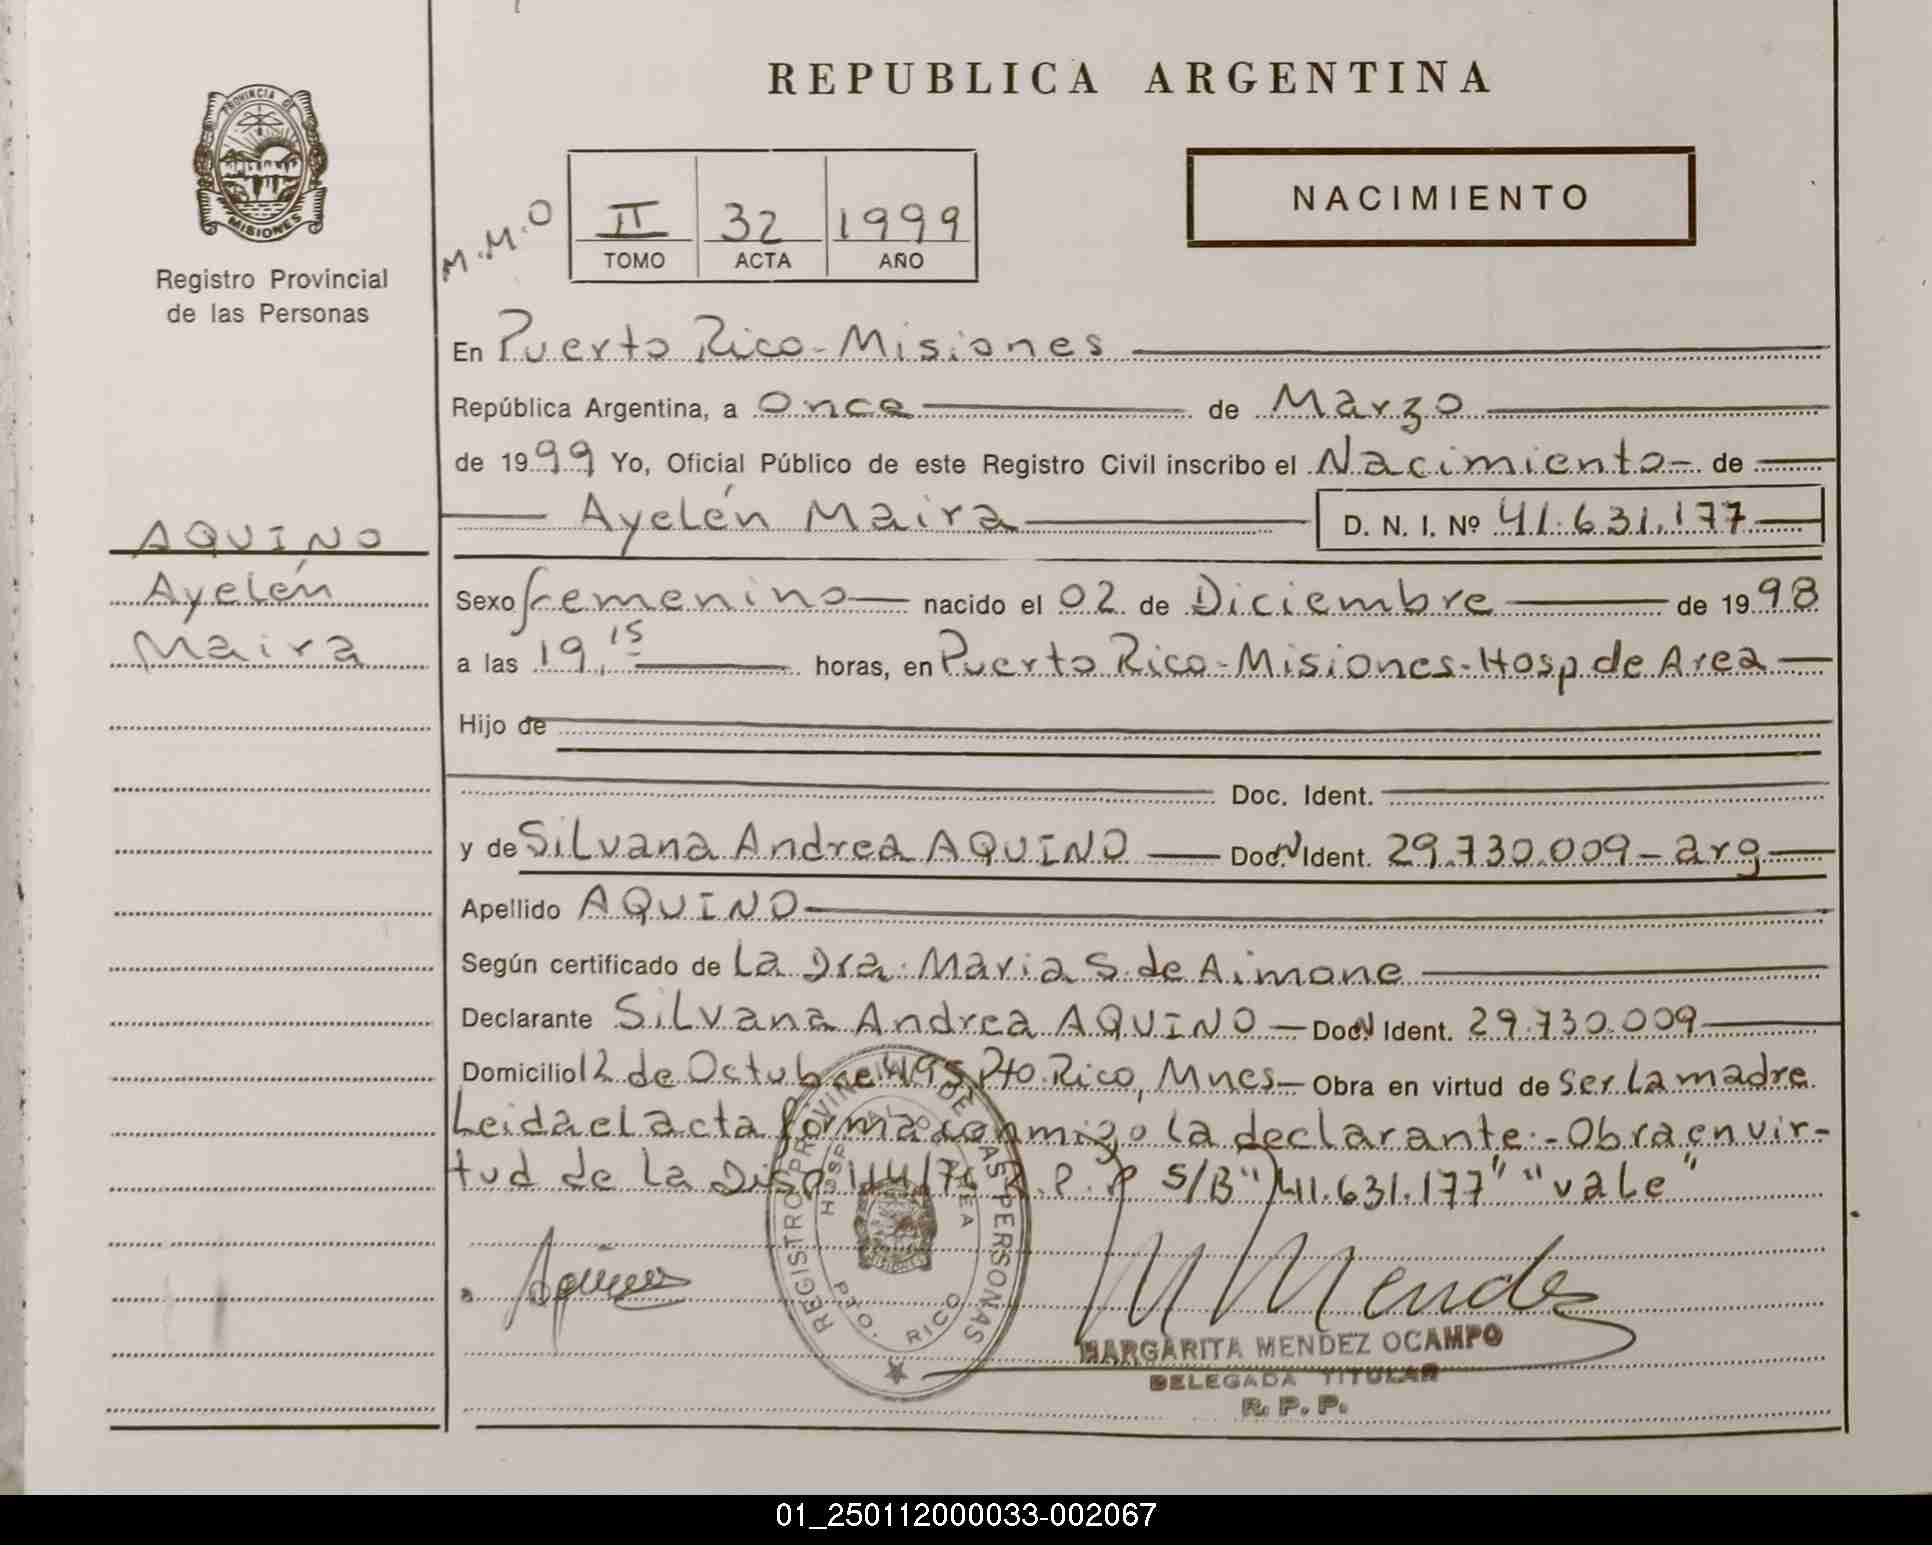 REPUBLICA ARGENTINA
PROVINCIA DE
MISIONES
Registro Provincial
de las Personas
NACIMIENTO
M.M.O
II 32 1999
TOMO ACTA AÑO
En Puerto Rico-Misiones
República Argentina, a Once de Marzo
de 1999 Yo, Oficial Público de este Registro Civil inscribo el Nacimiento- de
Ayelén Maira D. N. I. Nº 41.631.177
AQUINO
Ayelén
Maira
Sexo femenino nacido el 02 de Diciembre de 1998
a las 19,15 horas, en Puerto Rico-Misiones-Hosp de Area
Hijo de
Doc. Ident.
y de Silvana Andrea AQUINO Doc.N Ident. 29.730.009-arg
Apellido AQUINO
Según certificado de La Dra. Maria S. de Aimone
Declarante Silvana Andrea AQUINO Doc.N Ident. 29.730.009
Domicilio 12 de Octubre 495 Pto.Rico, Mnes- Obra en virtud de Ser La madre
Leida el acta forma conmigo la declarante.-Obra en vir-
tud de La Disp 114/76 R.P.P S/B" 41.631.177" "vale"
Aquino
M Mendez
REGISTRO PROVINCIAL DE LAS PERSONAS
HOSPITAL AREA
PTO. RICO
MARGARITA MENDEZ OCAMPO
DELEGADA TITULAR
R. P. P.
01_250112000033-002067